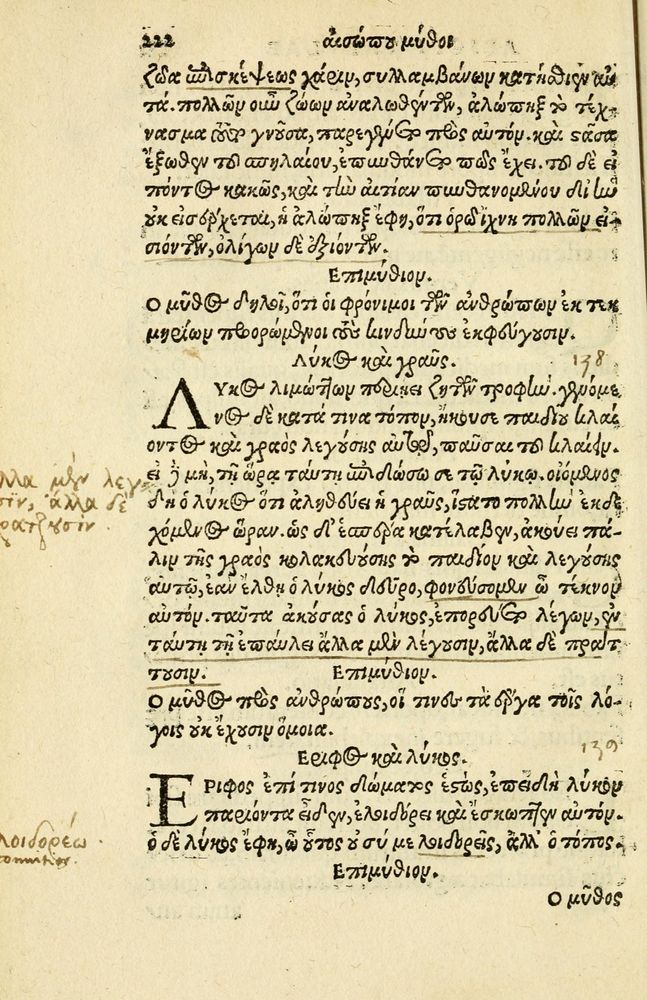 222 αἰσώπου μῦθοι
ζῶα ἐπισκέψεως χάριν, συλλαμβάνων κατήσθιεν αὐ
τά. πολλῶν οὖν ζώων ἀναλωθέντων, ἀλώπηξ τὸ τέχ-
νασμα αὐτοῦ γνοῦσα, παρεγένετο πρὸς αὐτόν. καὶ στᾶσα
ἔξωθεν τοῦ σπηλαίου, ἐπυνθάνετο πῶς ἔχει. τοῦ δὲ εἰ
πόντος κακῶς, καὶ τὴν αἰτίαν πυνθανομένου δι' ἣν
οὐκ εἰσέρχεται, ἡ ἀλώπηξ ἔφη, ὅτι ὁρῶ ἴχνη πολλῶν εἰ-
σιόντων, ὀλίγων δὲ ἐξιόντων.
Επιμύθιον.
Ο μῦθος δηλοῖ, ὅτι οἱ φρόνιμοι τῶν ἀνθρώπων ἐκ τεκ
μηρίων προορώμενοι τοὺς κινδύνους ἐκφεύγουσιν.
Λύκος καὶ γραῦς. 138
ΛΥκος λιμώττων περιῄει ζητῶν τροφήν. γενόμε
νος δὲ κατά τινα τόπον, ἤκουσε παιδίου κλαί
οντος καὶ γραὸς λεγούσης αὐτῷ, παῦσαι τοῦ κλαίειν.
εἰ δὲ μὴ, τῇ ὥρᾳ ταύτῃ ἐπιδώσω σε τῷ λύκῳ. οἰόμενος
δὲ ὁ λύκος ὅτι ἀληθεύει ἡ γραῦς, ἵστατο πολλὴν ἐκδε
χόμενος ὥραν. ὡς δ' ἑσπέρα κατέλαβεν, ἀκούει πά-
λιν τῆς γραὸς κολακευούσης τὸ παιδίον καὶ λεγούσης
αὐτῷ, ἐὰν ἔλθῃ ὁ λύκος δεῦρο, φονεύσομεν ὦ τέκνον
αὐτόν. ταῦτα ἀκούσας ὁ λύκος, ἐπορεύετο λέγων, ἐν
ταύτῃ τῇ ἐπαύλει ἄλλα μὲν λέγουσιν, ἄλλα δὲ πράτ
τουσιν. Επιμύθιον.
Ο μῦθος πρὸς ἀνθρώπους, οἵ τινες τὰ ἔργα τοῖς λό-
γοις οὐκ ἔχουσιν ὅμοια.
Εριφος καὶ λύκος. 139
ΕΡιφος ἐπί τινος δώματος ἑστὼς, ἐπειδὴ λύκον
παριόντα εἶδεν, ἐλοιδόρει καὶ ἔσκωπτεν αὐτόν.
ὁ δὲ λύκος ἔφη, ὦ οὗτος οὐ σύ με λοιδορεῖς, ἀλλ' ὁ τόπος.
Επιμύθιον.
Ο μῦθος
λλα μὲν λεγ
σιν, ἄλλα δὲ
λοιδορέω